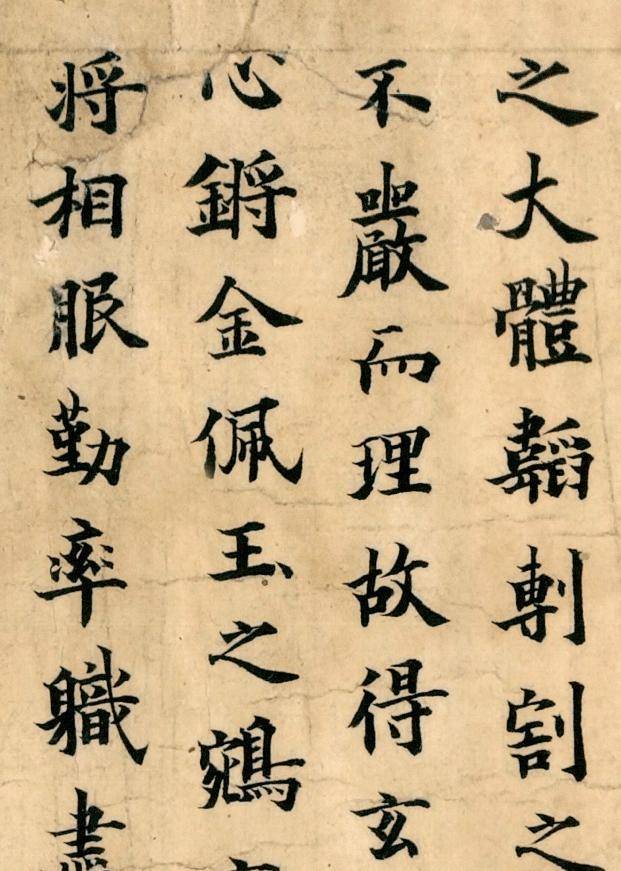 之大體韜剸割之
不嚴而理故得玄
心鏘金佩玉之鵷
将相服勤率軄盡